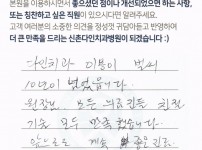 본원을 이용하시면서 좋으셨던 점이나 개선되었으면 하는 사항,
또는 칭찬하고 싶은 직원이 있으시다면 알려주세요.
고객 여러분의 소중한 의견을 정성껏 귀담아듣고 반영하여
더 큰 만족을 드리는 신촌다인치과병원이 되겠습니다 :)
다인치과 이용이 벌써
10년이 넘었습니다
원장님 모든 의료진들 친절
기술 모두 만족했습니다
앞으로도 계속 좋은 진료